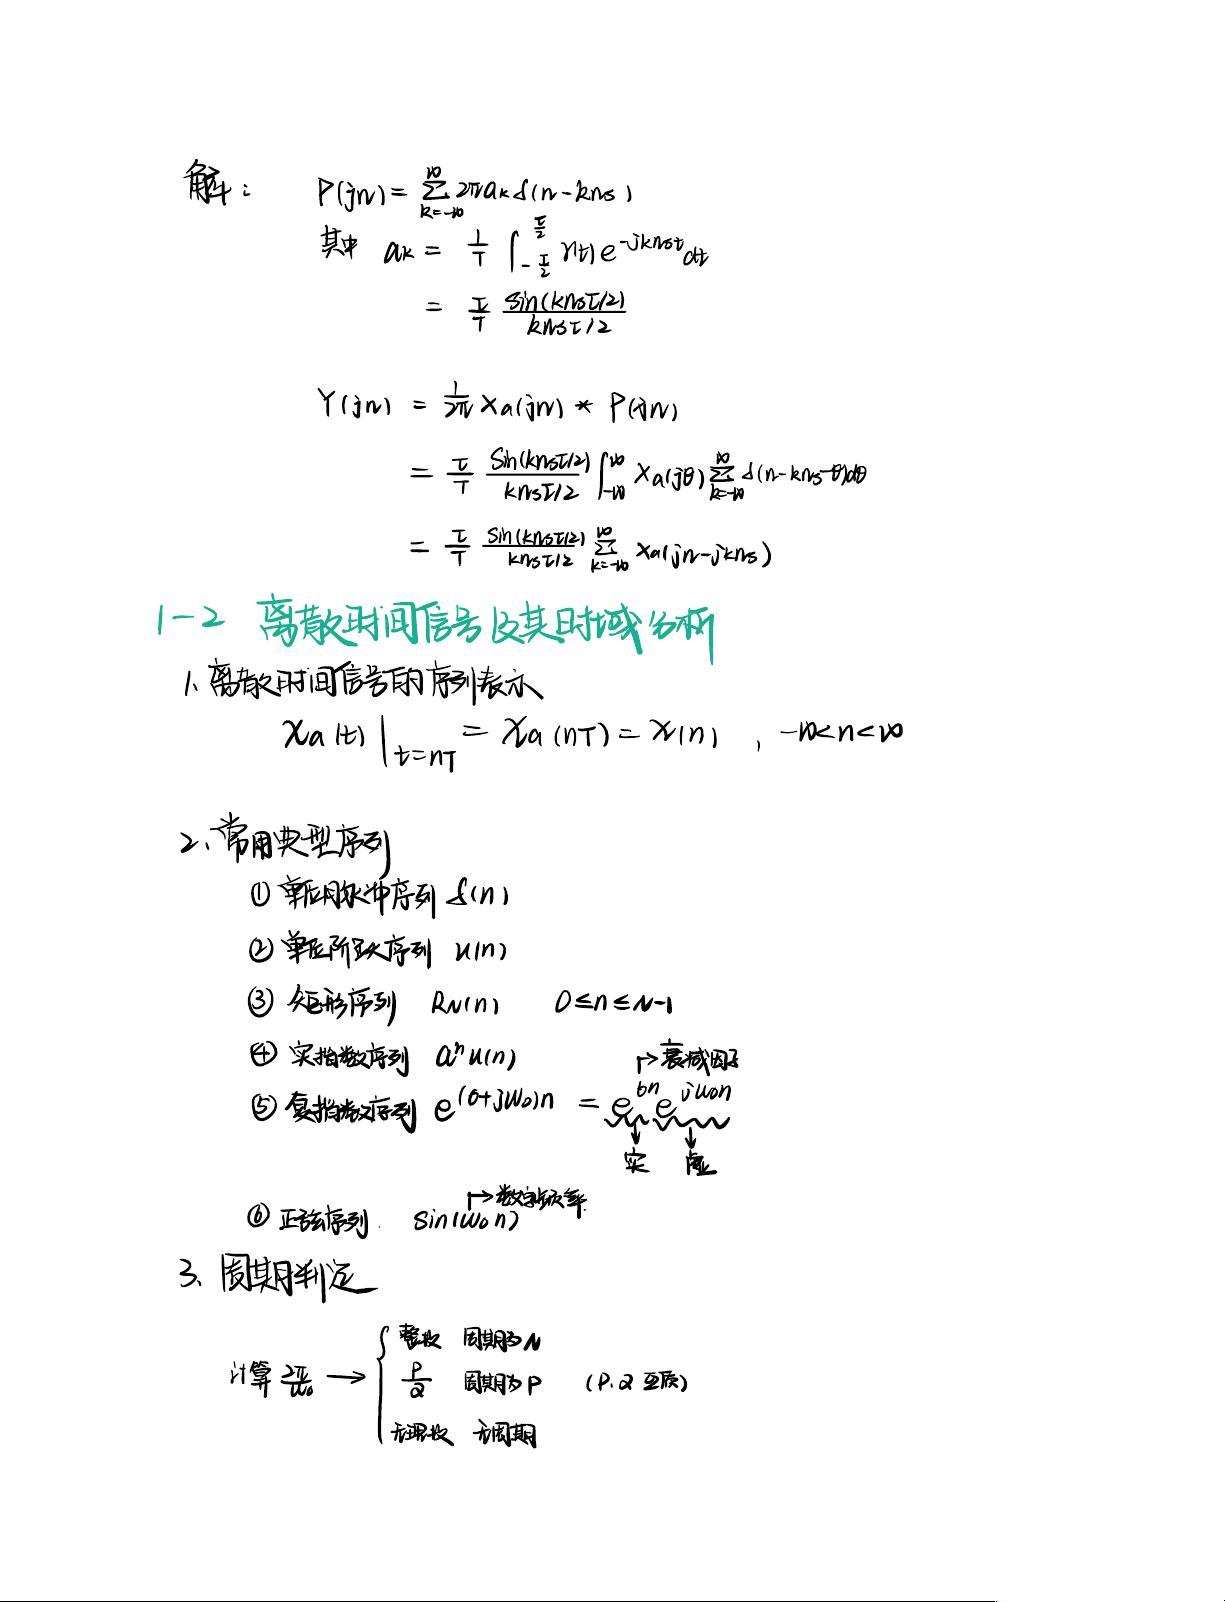 解：P(jΩ) = ∑_{k=-∞}^{∞} 2πa_k δ(Ω-kΩs)
其中 a_k = 1/T ∫_{-τ/2}^{τ/2} r(t) e^{-jkΩst} dt
= τ/T sin(kΩsτ/2)/(kΩsτ/2)
Y(jΩ) = 1/2π Xa(jΩ) * P(jΩ)
= τ/T sin(kΩsτ/2)/(kΩsτ/2) ∫_{-∞}^{∞} Xa(jθ) ∑_{k=-∞}^{∞} δ(Ω-kΩs-θ)dθ
= τ/T sin(kΩsτ/2)/(kΩsτ/2) ∑_{k=-∞}^{∞} Xa(jΩ-jkΩs)
1-2 离散时间信号及其时域分析
1、离散时间信号的序列表示
xa(t)|_{t=nT} = xa(nT) = x(n)，-∞<n<∞
2、常用典型序列
① 单位脉冲序列 δ(n)
② 单位阶跃序列 u(n)
③ 矩形序列 RN(n) 0≤n≤N-1
④ 实指数序列 a^n u(n)
↦衰减因子
⑤ 复指数序列 e^{(σ+jω0)n} = e^{σn} e^{jω0n}
↓ ↓
实 虚
↦数字频率
⑥ 正弦序列. sin(ω0n)
3、周期判定
整数 周期为N
计算 2π/ω0 → { P/Q 周期为P (P.Q 互质)
无理数 无周期